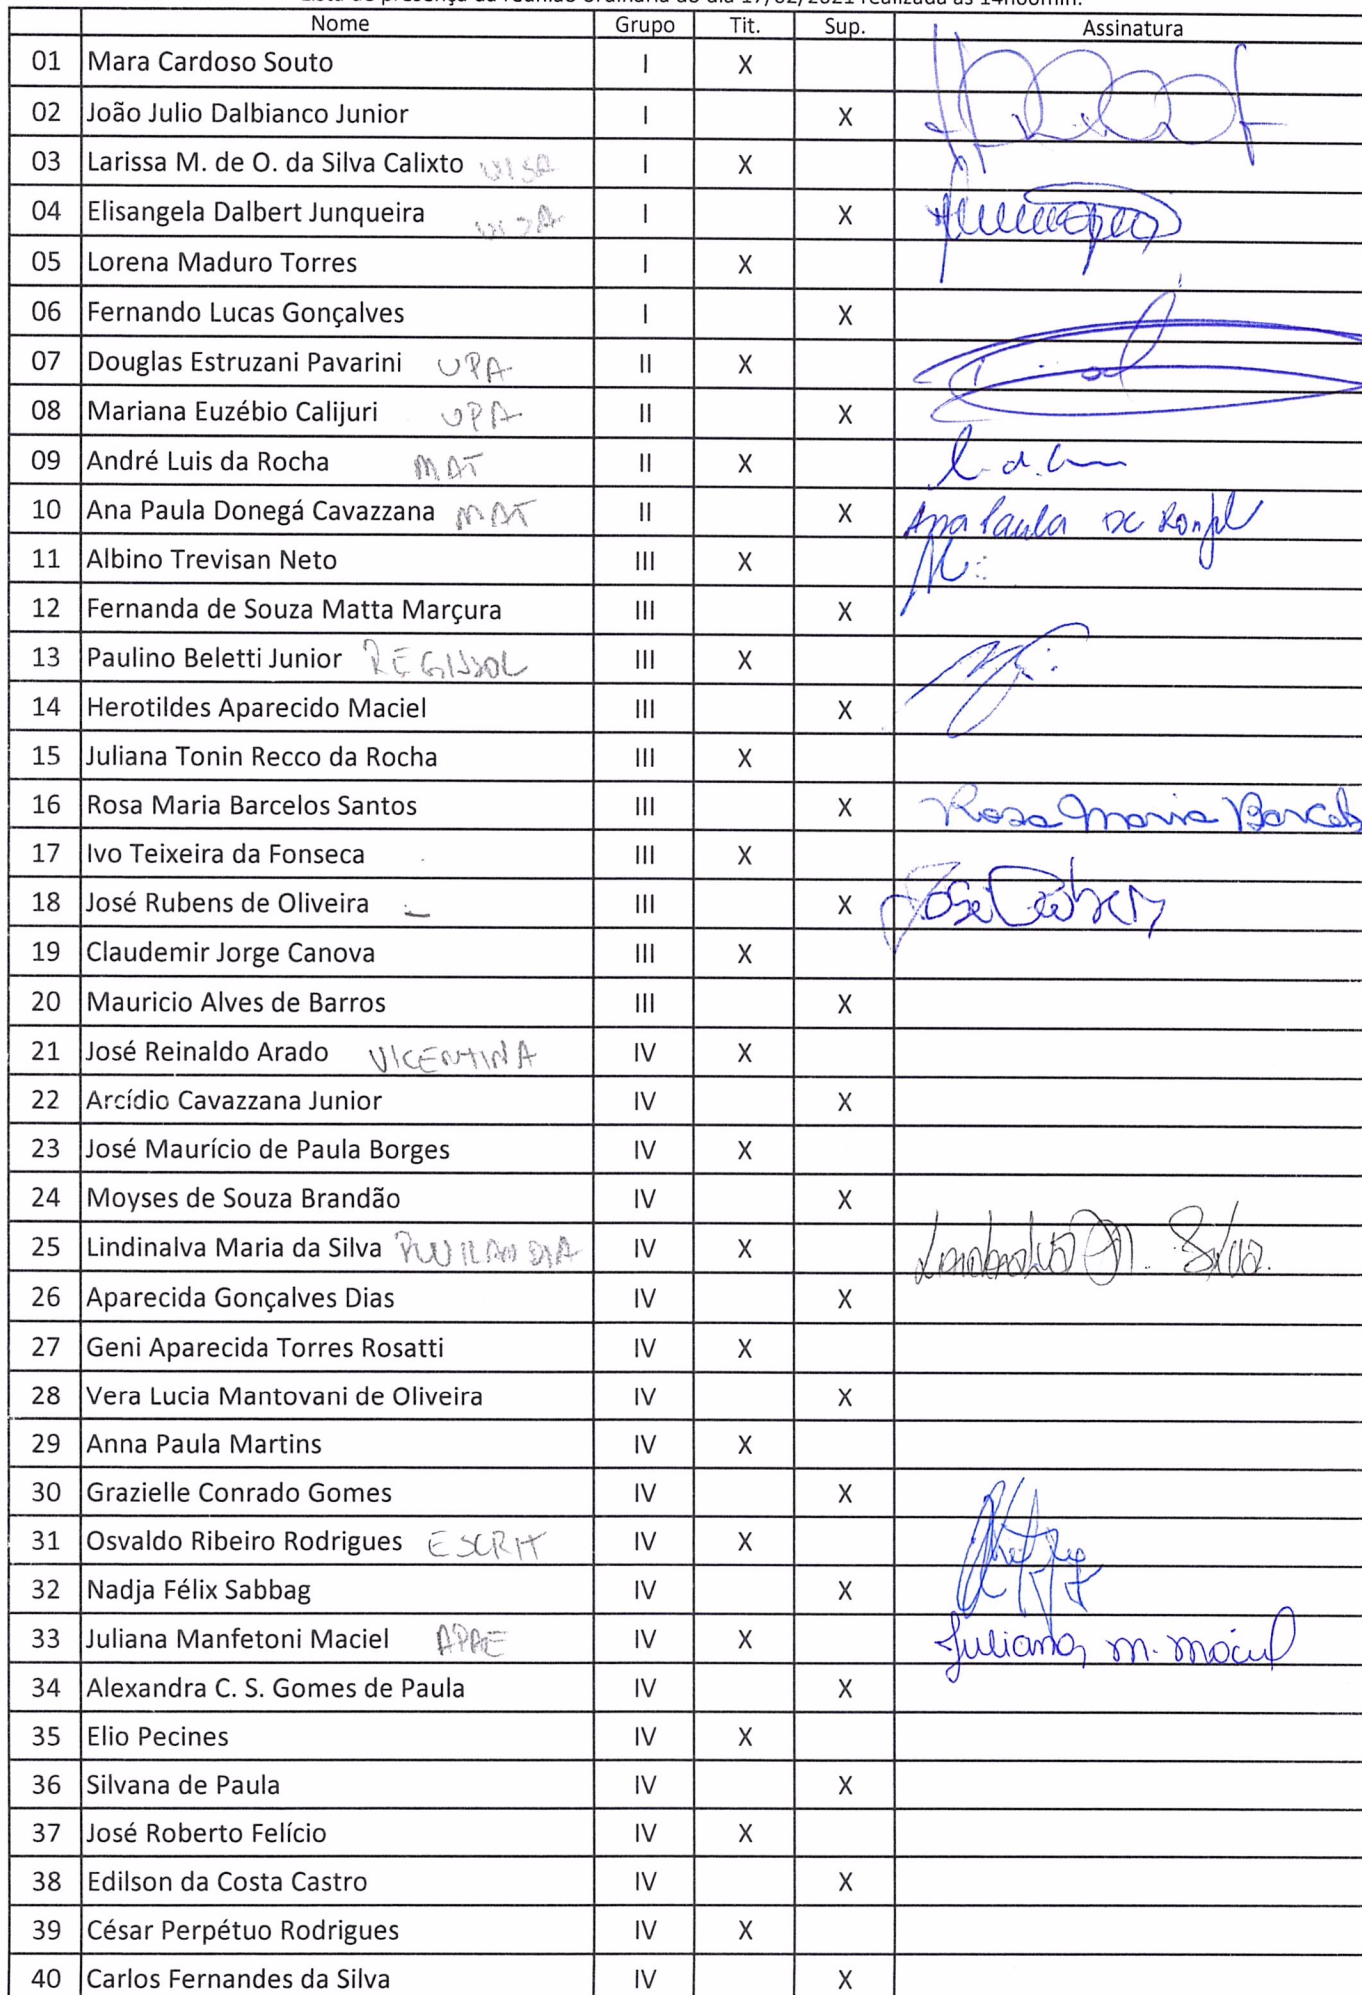 Lista de presença da reunião ordinária do dia 17/02/2021 realizada às 14h00min.
Nome Grupo Tit. Sup. Assinatura
01 Mara Cardoso Souto I X
02 João Julio Dalbianco Junior I X
03 Larissa M. de O. da Silva Calixto VISA I X
04 Elisangela Dalbert Junqueira VISA I X
05 Lorena Maduro Torres I X
06 Fernando Lucas Gonçalves I X
07 Douglas Estruzani Pavarini UPA II X
08 Mariana Euzébio Calijuri UPA II X
09 André Luis da Rocha MAT II X
10 Ana Paula Donegá Cavazzana MAT II X Ana Paula DC
11 Albino Trevisan Neto III X
12 Fernanda de Souza Matta Marçura III X
13 Paulino Beletti Junior III X
14 Herotildes Aparecido Maciel III X
15 Juliana Tonin Recco da Rocha III X
16 Rosa Maria Barcelos Santos III X Rosa Maria Barcelos
17 Ivo Teixeira da Fonseca III X
18 José Rubens de Oliveira III X José Rubens
19 Claudemir Jorge Canova III X
20 Mauricio Alves de Barros III X
21 José Reinaldo Arado VICENTINA IV X
22 Arcídio Cavazzana Junior IV X
23 José Maurício de Paula Borges IV X
24 Moyses de Souza Brandão IV X
25 Lindinalva Maria da Silva IV X Lindinalva M. Silva.
26 Aparecida Gonçalves Dias IV X
27 Geni Aparecida Torres Rosatti IV X
28 Vera Lucia Mantovani de Oliveira IV X
29 Anna Paula Martins IV X
30 Grazielle Conrado Gomes IV X
31 Osvaldo Ribeiro Rodrigues ESCRIT IV X
32 Nadja Félix Sabbag IV X
33 Juliana Manfetoni Maciel APAE IV X Juliana M. Maciel
34 Alexandra C. S. Gomes de Paula IV X
35 Elio Pecines IV X
36 Silvana de Paula IV X
37 José Roberto Felício IV X
38 Edilson da Costa Castro IV X
39 César Perpétuo Rodrigues IV X
40 Carlos Fernandes da Silva IV X